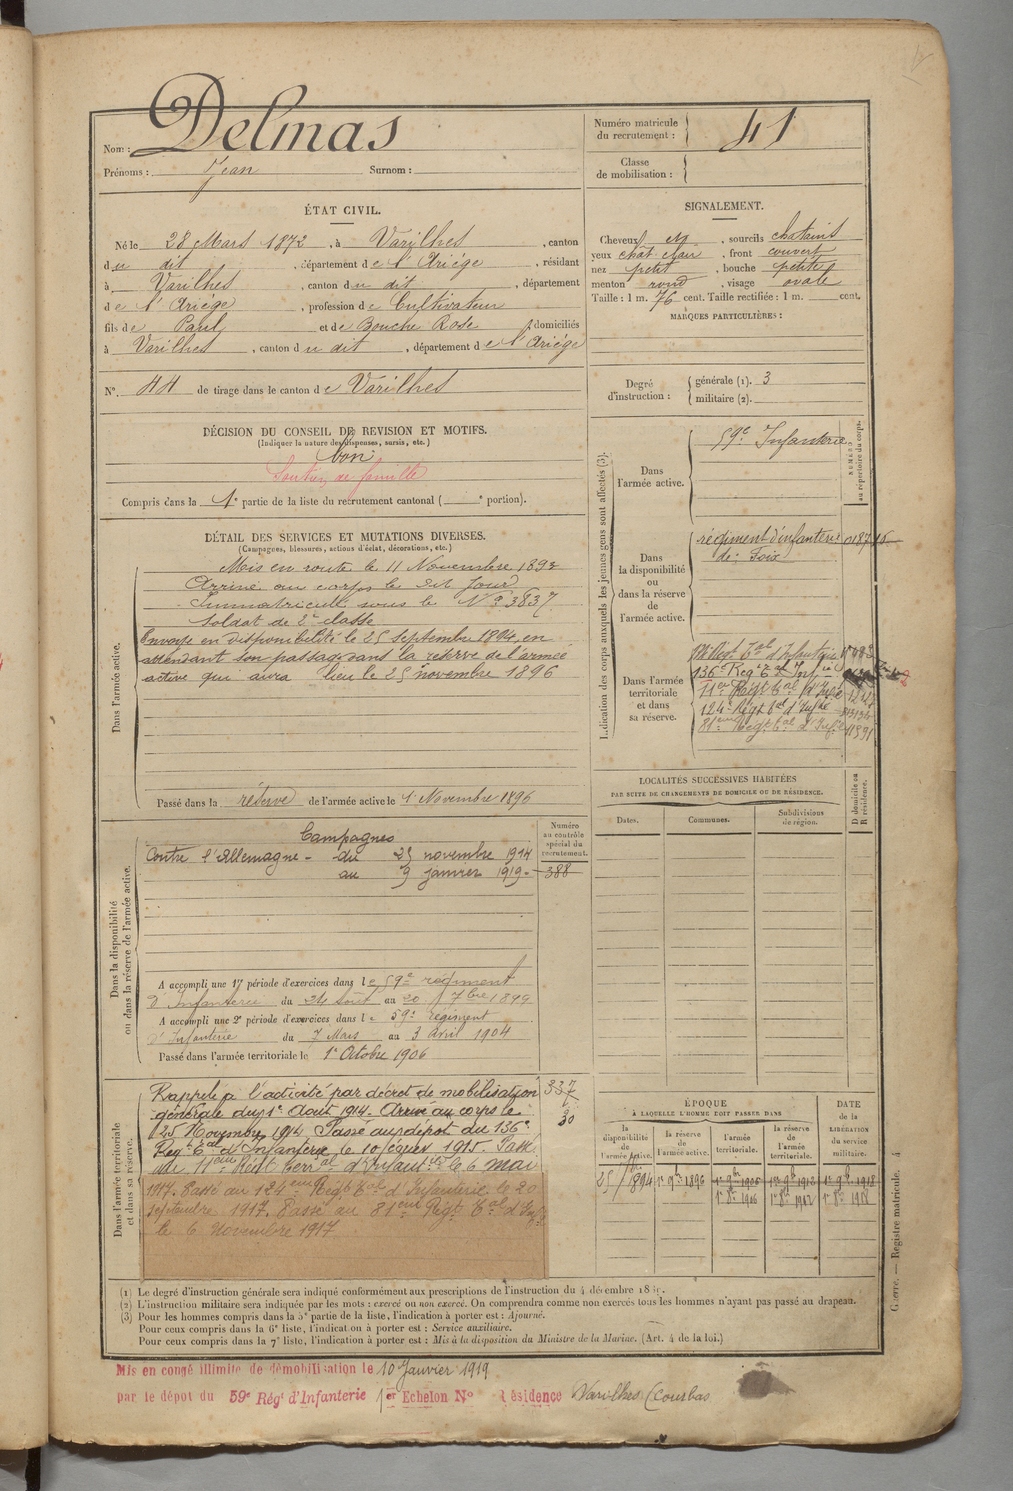 Nom : Delmas
Prénoms : Jean Surnom :
Numéro matricule du recrutement : 41
Classe de mobilisation :
ÉTAT CIVIL.
Né le 28 Mars 1872, à Varilhes, canton
du dit, département de l'Ariège, résidant
à Varilhes, canton du dit, département
de l'Ariège, profession de Cultivateur
fils de Paul et de Bouche Rose, domiciliés
à Varilhes, canton du dit, département de l'Ariège
N° 44 de tirage dans le canton de Varilhes
SIGNALEMENT.
Cheveux et sourcils chatains
yeux chât. clair, front couvert
nez petit, bouche petite
menton rond, visage ovale
Taille : 1 m. 76 cent. Taille rectifiée : 1 m. cent.
MARQUES PARTICULIÈRES :
Degré d'instruction : générale (1). 3
militaire (2).
DÉCISION DU CONSEIL DE REVISION ET MOTIFS.
(Indiquer la nature des dispenses, sursis, etc.)
bon
Soutien de famille
Compris dans la 1e partie de la liste du recrutement cantonal ( e portion).
DÉTAIL DES SERVICES ET MUTATIONS DIVERSES.
(Campagnes, blessures, actions d'éclat, décorations, etc.)
Dans l'armée active.
Mis en route le 11 Novembre 1893
Arrivé au corps le dit jour
Immatriculé sous le N° 3837
Soldat de 2e classe
Envoyé en disponibilité le 25 septembre 1894, en
attendant son passage dans la réserve de l'armée
active qui aura lieu le 25 novembre 1896
Passé dans la réserve de l'armée active le 1 Novembre 1896
Dans la disponibilité
ou dans la réserve de l'armée active.
Numéro
au contrôle
spécial du
recrutement.
388
Campagnes
Contre l'Allemagne - du 25 novembre 1914
au 9 janvier 1919 -
A accompli une 1re période d'exercices dans le 59e régiment
d'Infanterie du 24 Août au 20 7bre 1899
A accompli une 2e période d'exercices dans le 59e régiment
d'Infanterie du 7 Mars au 3 Avril 1904
Passé dans l'armée territoriale le 1er Octobre 1906
Dans l'armée territoriale
et dans sa réserve.
Rappelé à l'activité par décret de mobilisation 337
générale du 1er Août 1914. Arrivé au corps le
25 Novembre 1914 Passé au dépôt du 136e
Regt Tal d'Infanterie le 10 février 1915. Passé
au 11eme Régt Terral d'Infanterie le 6 mai
1917. Passé au 124eme Régt Tal d'Infanterie le 20
septembre 1917. Passé au 81eme Régt Tal d'Infie
le 6 Novembre 1917
Indication des corps auxquels les jeunes gens sont affectés (3).
NUMÉRO
au répertoire du corps.
Dans
l'armée active.
59e Infanterie
Dans
la disponibilité
ou
dans la réserve
de
l'armée active.
régiment d'infanterie
de Foix
Dans l'armée
territoriale
et dans
sa réserve.
136e Regt Tal Infie
11eme Régt Tal d'Infie
124e Régt Tal d'Infie
81eme Régt Tal d'Infie
LOCALITÉS SUCCESSIVES HABITÉES
PAR SUITE DE CHANGEMENTS DE DOMICILE OU DE RÉSIDENCE.
Dates. Communes. Subdivisions de région. D domicile ou R résidence.
ÉPOQUE
À LAQUELLE L'HOMME DOIT PASSER DANS
DATE
de la
LIBÉRATION
du service
militaire.
la disponibilité de l'armée active. la réserve de l'armée active. l'armée territoriale. la réserve de l'armée territoriale.
1894 1er 9bre 1896 1er 9bre 1906 1er 9bre 1912 1er 9bre 1918
1er 8bre 1906 1er 8bre 1912 1er 8bre 1918
(1) Le degré d'instruction générale sera indiqué conformément aux prescriptions de l'instruction du 4 décembre
(2) L'instruction militaire sera indiquée par les mots : exercé ou non exercé. On comprendra comme non exercés tous les hommes n'ayant pas passé au drapeau.
(3) Pour les hommes compris dans la 5e partie de la liste, l'indication à porter est : Ajourné.
Pour ceux compris dans la 6e liste, l'indication à porter est : Service auxiliaire.
Pour ceux compris dans la 7e liste, l'indication à porter est : Mis à la disposition du Ministre de la Marine. (Art. 4 de la loi.)
Guerre. — Registre matricule. 4
Mis en congé illimité de démobilisation le 10 Janvier 1919
par le dépôt du 59e Régt d'Infanterie 1er Echelon N° Résidence Varilhes (Courbas